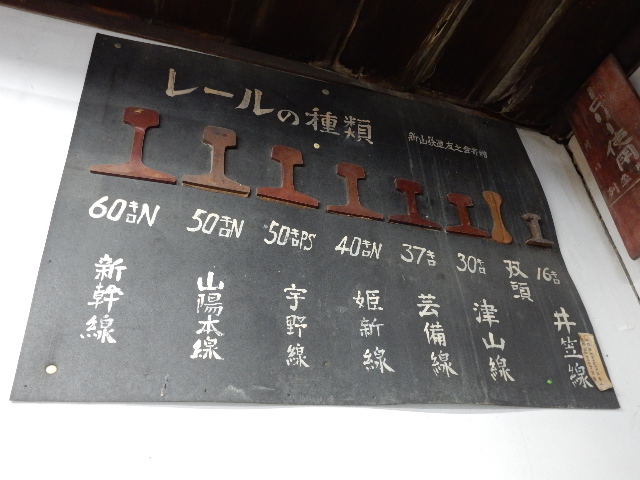 レールの種類
60キロN
50キロN
50キロPS
40キロN
37キロ
30キロ
双頭
16キロ
新幹線
山陽本線
宇野線
姫新線
芸備線
津山線
井笠線